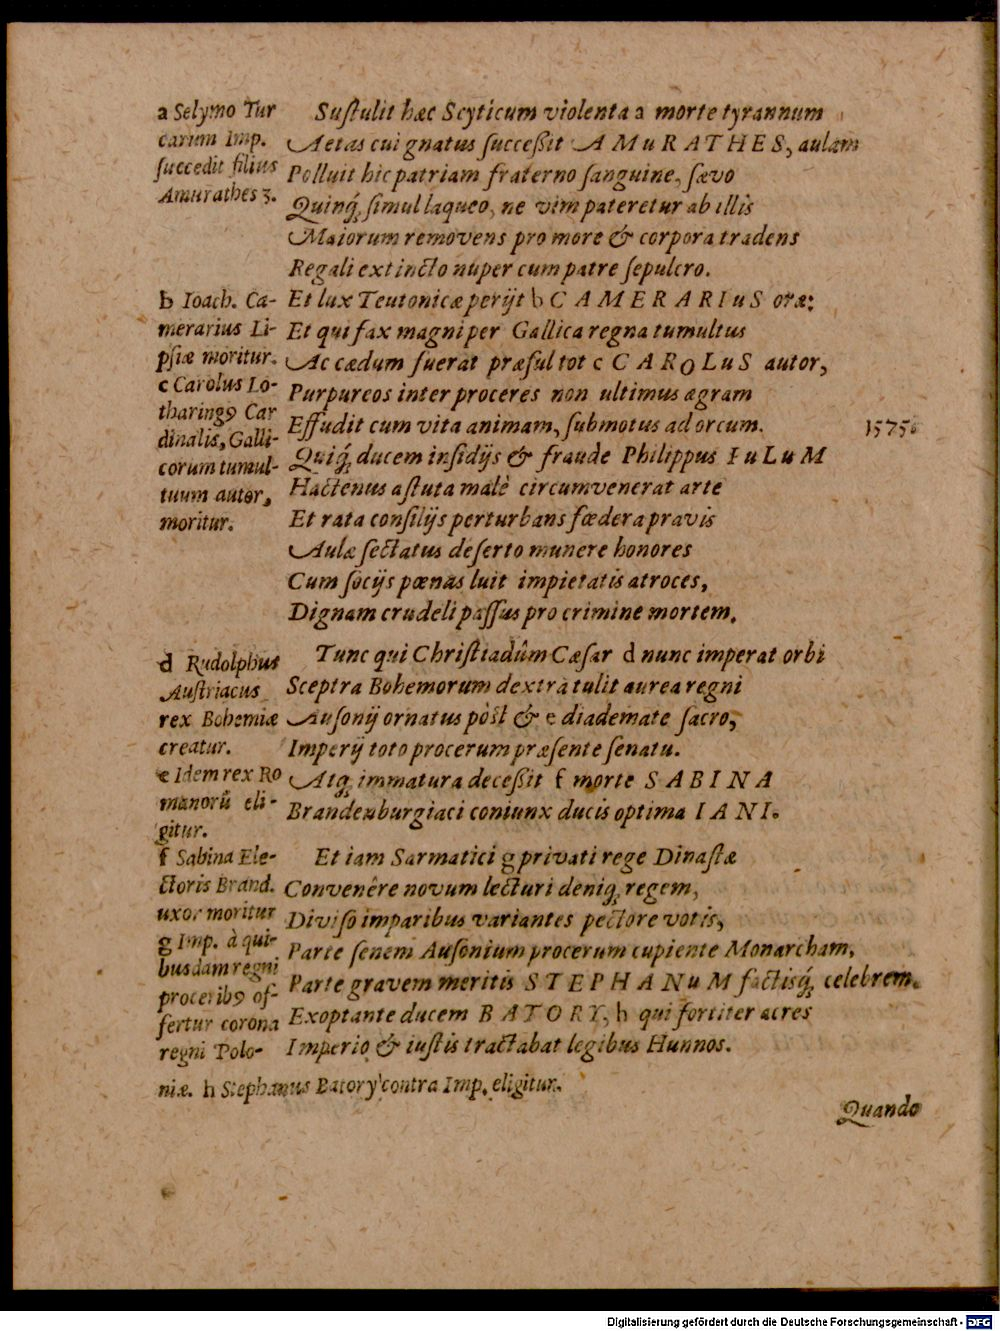 a Selymo Tur
carum Imp.
ſuccedit filius
Amurathes 3.
b Ioach. Ca-
merarius Li-
pſiæ moritur.
c Carolus Lo-
tharingꝯ Car
dinalis, Galli-
corum tumul-
tuum autor,
moritur.
d Rudolphus
Auſtriacus
rex Bohemiæ
creatur.
e Idem rex Ro
manorũ eli-
gitur.
f Sabina Ele-
ctoris Brand.
uxor moritur
g Imp. à qui-
busdam regni
proceribꝯ of-
fertur corona
regni Polo-
niæ. h Stephanus Batory contra Imp. eligitur.
Suſtulit hæc Scyticum violenta a morte tyrannum
Aetas cui gnatus ſucceſſit AMuRATHES, aulam
Polluit hic patriam fraterno ſanguine, ſævo
Quinq́; ſimul laqueo, ne vim pateretur ab illis
Maiorum removens pro more & corpora tradens
Regali extincto nuper cum patre ſepulcro.
Et lux Teutonicæ perijt b CAMERARIuS oræ:
Et qui fax magni per Gallica regna tumultus
Ac cædum fuerat præſul tot c CAROLuS autor,
Purpureos inter proceres non ultimus ægram
Effudit cum vita animam, ſubmotus ad orcum.
1575.
Quiq́; ducem inſidijs & fraude Philippus IuLuM
Hactenus aſtuta malè circumvenerat arte
Et rata conſilijs perturbans fœdera pravis
Aulæ ſectatus deſerto munere honores
Cum ſocijs pœnas luit impietatis atroces,
Dignam crudeli paſſus pro crimine mortem.
Tunc qui Chriſtiadûm Cæſar d nunc imperat orbi
Sceptra Bohemorum dextrâ tulit aurea regni
Auſonij ornatus pòſt & e diademate ſacro,
Imperij toto procerum præſente ſenatu.
Atq; immatura deceſſit f morte SABINA
Brandenburgiaci coniunx ducis optima IANI.
Et iam Sarmatici g privati rege Dinaſtæ
Convenêre novum lecturi deniq; regem,
Diviſo imparibus variantes pectore votis,
Parte ſenem Auſonium procerum cupiente Monarcham,
Parte gravem meritis STEPHANuM factisq́; celebrem.
Exoptante ducem BATORY, h qui fortiter acres
Imperio & iuſtis tractabat legibus Hunnos.
Quando
Digitalisierung gefördert durch die Deutsche Forschungsgemeinschaft - DFG